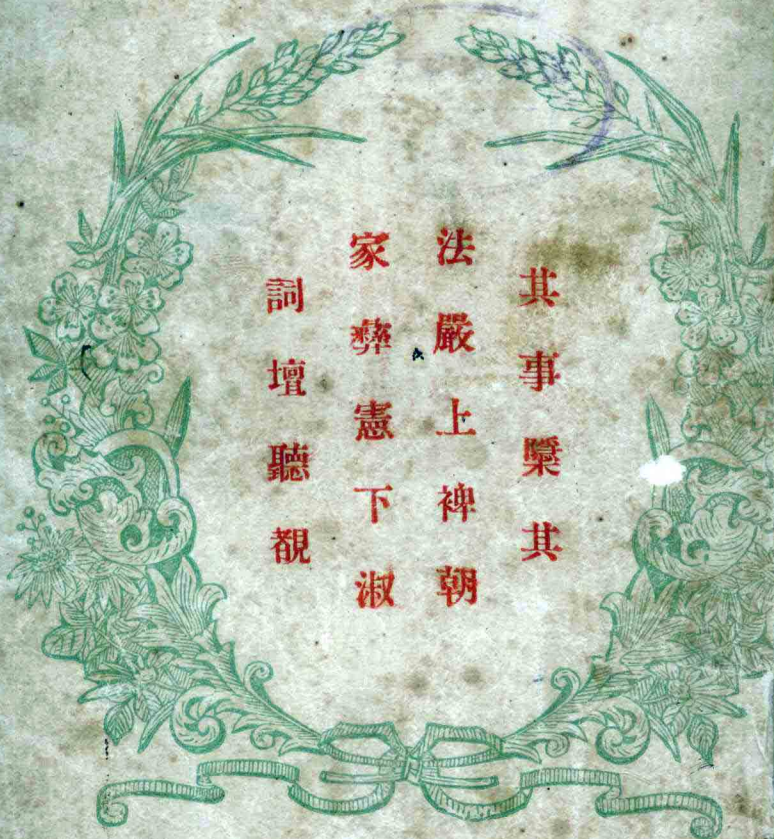 其事槩其
法嚴上裨朝
家彝憲下淑
詞壇聽覩